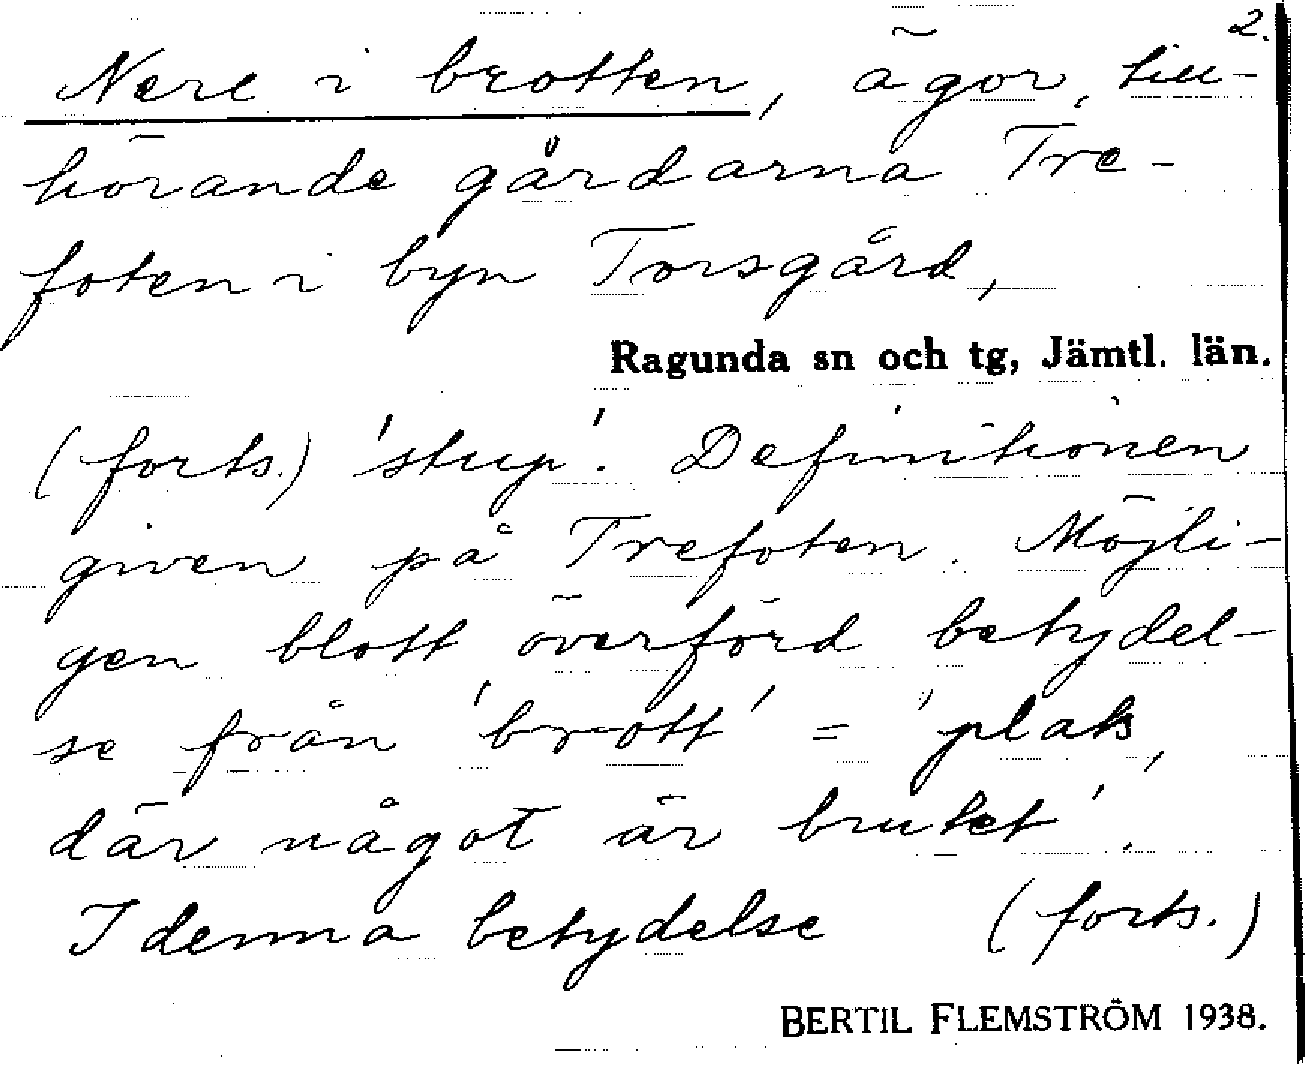 2.
Nere i brotten, ägor, till-
hörande gårdarna Tre-
foten i byn Torsgård,
Ragunda sn och tg, Jämtl. län.
(forts.) 'stup'. Definitionen
given på Trefoten. Möjli-
gen blott överförd betydel-
se från 'brott' = 'plats,
där något är brutet'.
I denna betydelse (forts.)
BERTIL FLEMSTRÖM 1938.